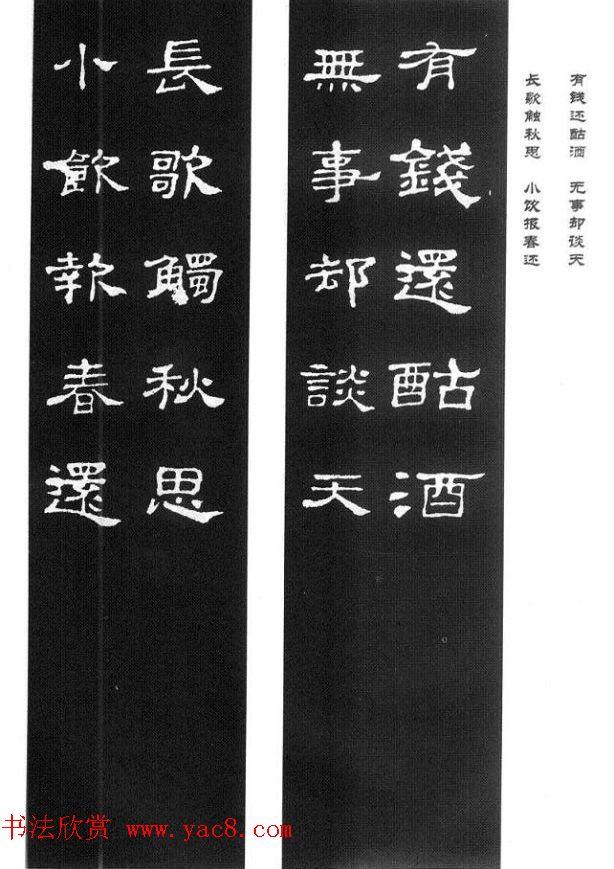 有錢还酤酒　无事却谈天
长歌触秋思　小饮报春还
有錢還酤酒
無事却談天
長歌觸秋思
小飲報春還
书法欣赏 www.yac8.com